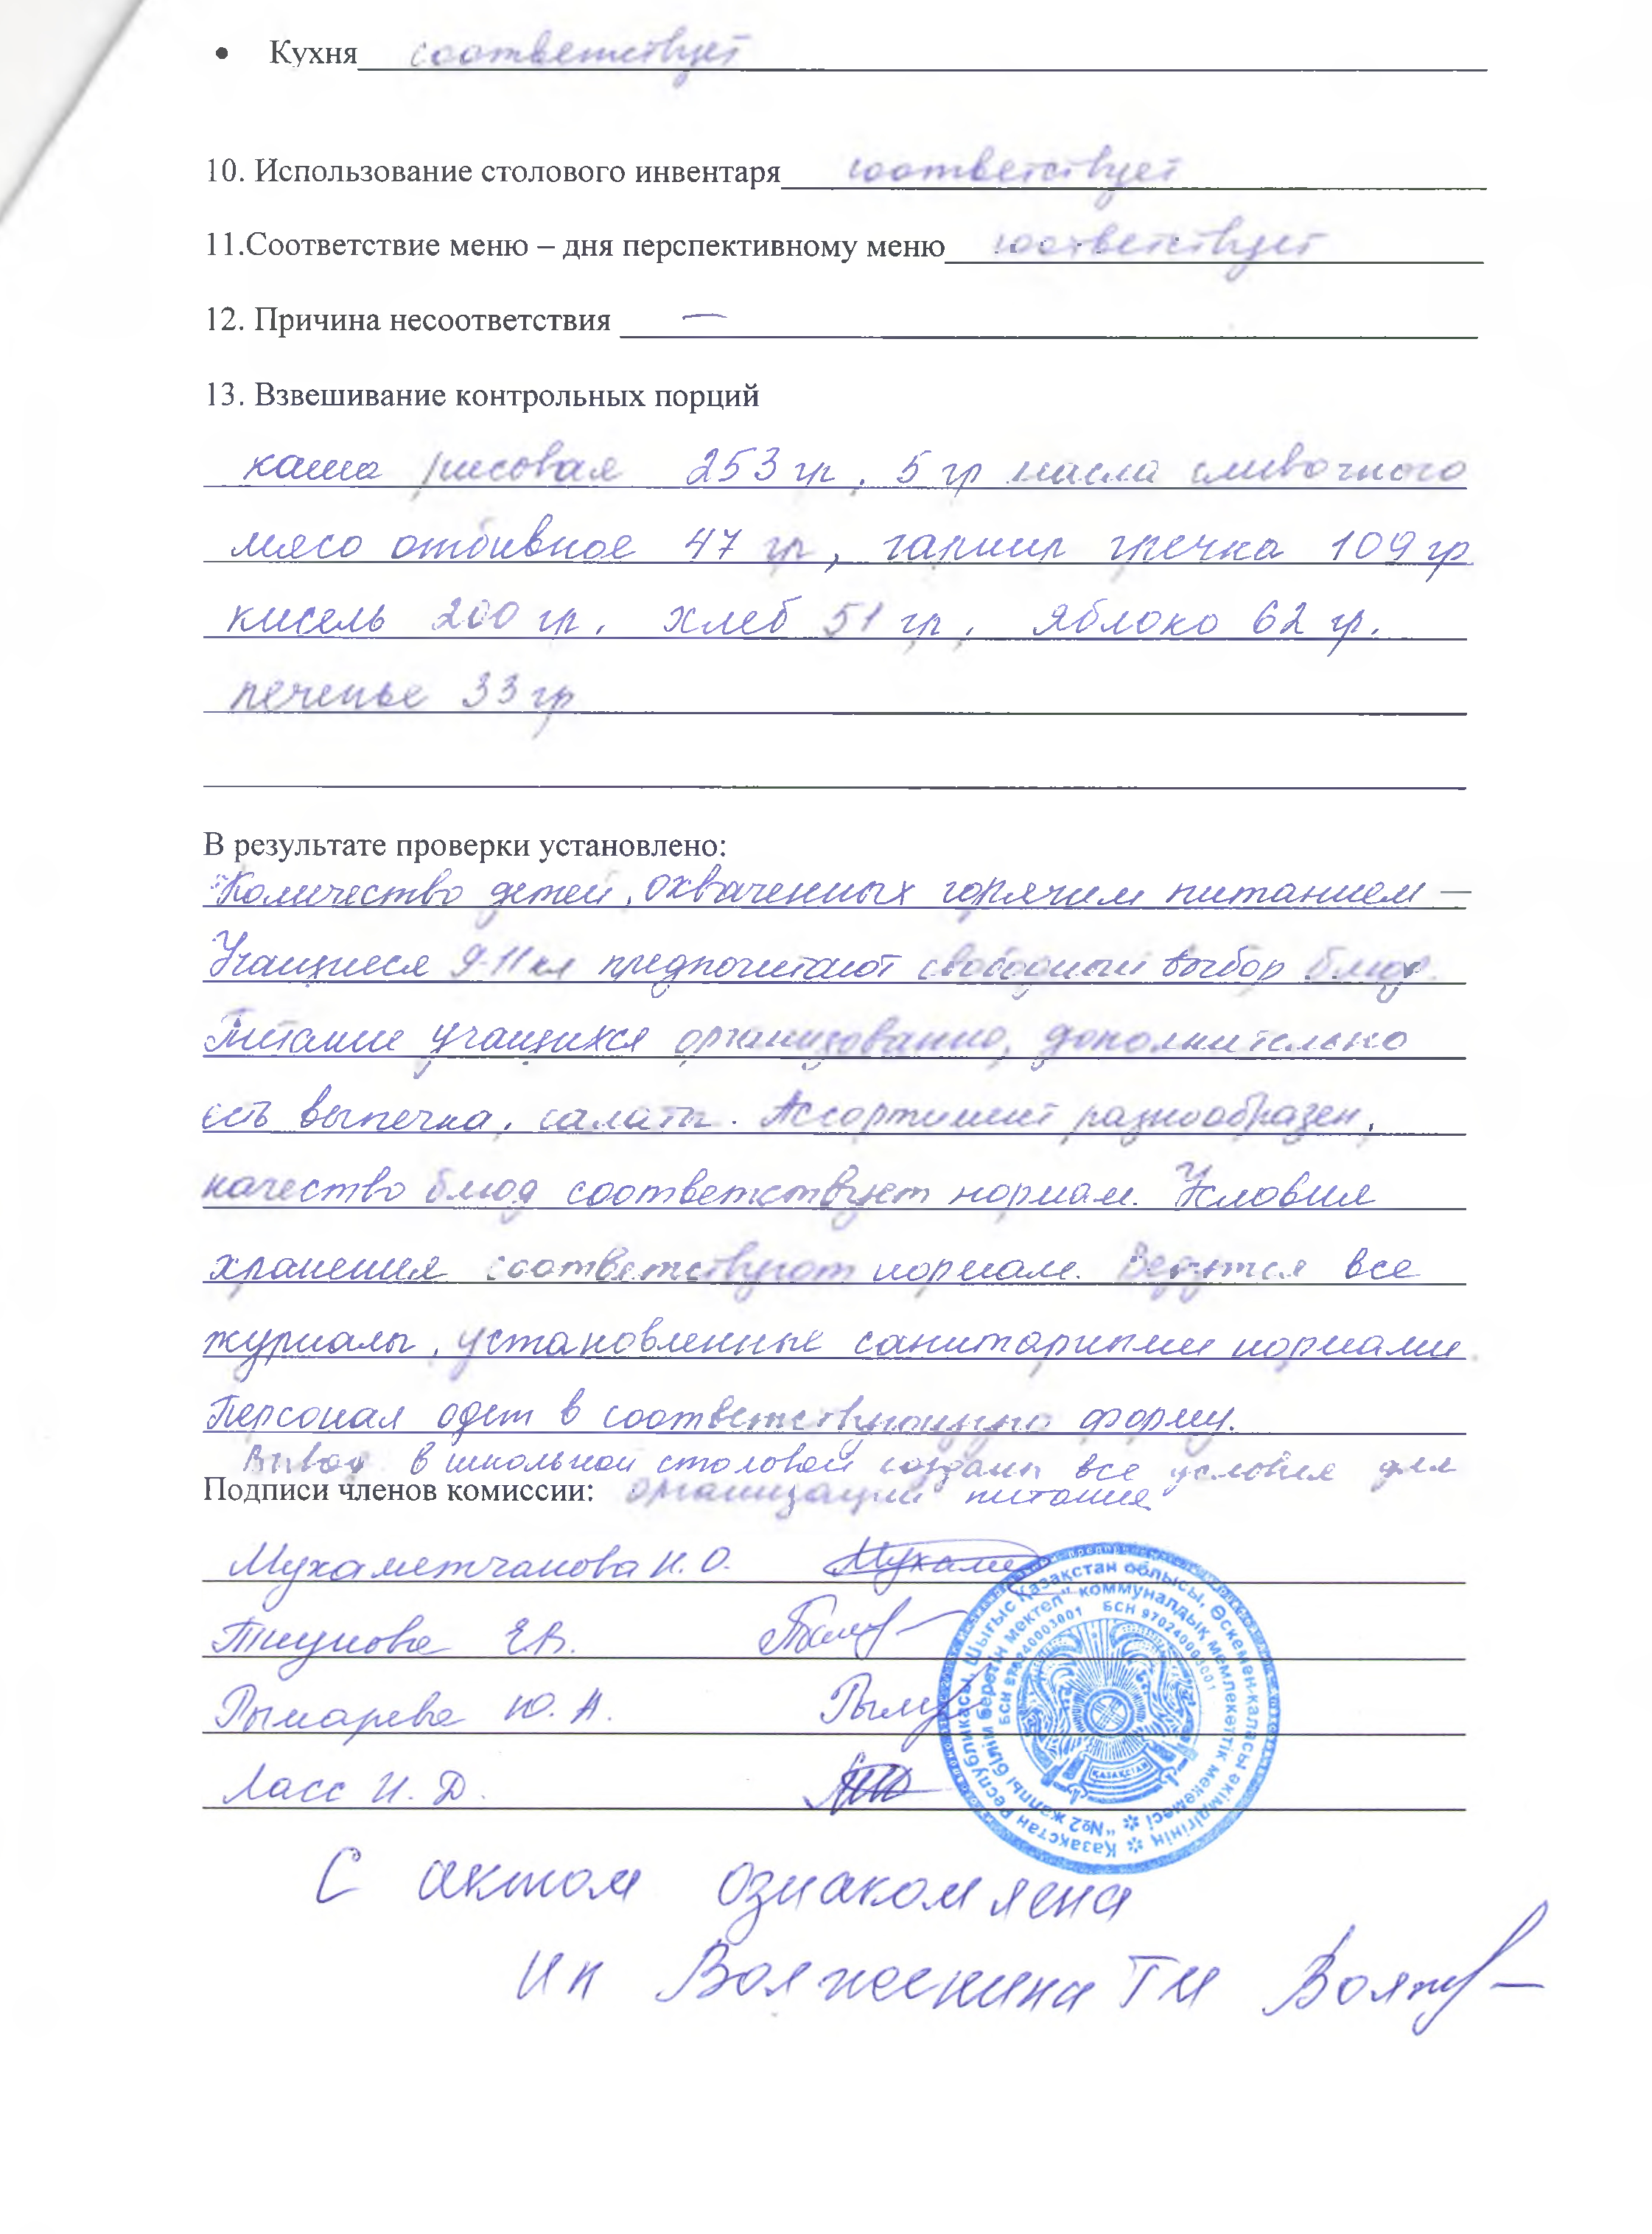 • Кухня соответствует
10. Использование столового инвентаря соответствует
11.Соответствие меню – дня перспективному меню соответствует
12. Причина несоответствия —
13. Взвешивание контрольных порций
каша рисовая 253 гр, 5 гр масла сливочного
мясо отбивное 47 гр, гарнир гречка 109 гр
кисель 200 гр, хлеб 51 гр, яблоко 62 гр.
печенье 33 гр
В результате проверки установлено:
Количество детей, охваченных горячим питанием —
Учащиеся 9-11 кл предпочитают свободный выбор блюд.
Питание учащихся организованно, дополнительно
есть выпечка, салаты. Ассортимент разнообразен,
качество блюд соответствует нормам. Условия
хранения соответствуют нормам. Ведутся все
журналы, установленные санитарными нормами.
Персонал одет в соответствующую форму.
Вывод в школьной столовой созданы все условия для
Подписи членов комиссии: организации питания
Мухаметчанова Н. О. Мухаме
Тиунова Е.В.
Рымарева Ю. А. Рым
Ласс И. Д.
Қазақстан Республикасы, Шығыс Қазақстан облысы, Өскемен қаласы әкімдігінің
"№2 жалпы білім беретін мектеп" коммуналдық мемлекеттік мекемесі
БСН 970240003001 БСН 970240003001
ҚАЗАҚСТАН
С актом ознакомлена
ИП Волженина ТМ Волж